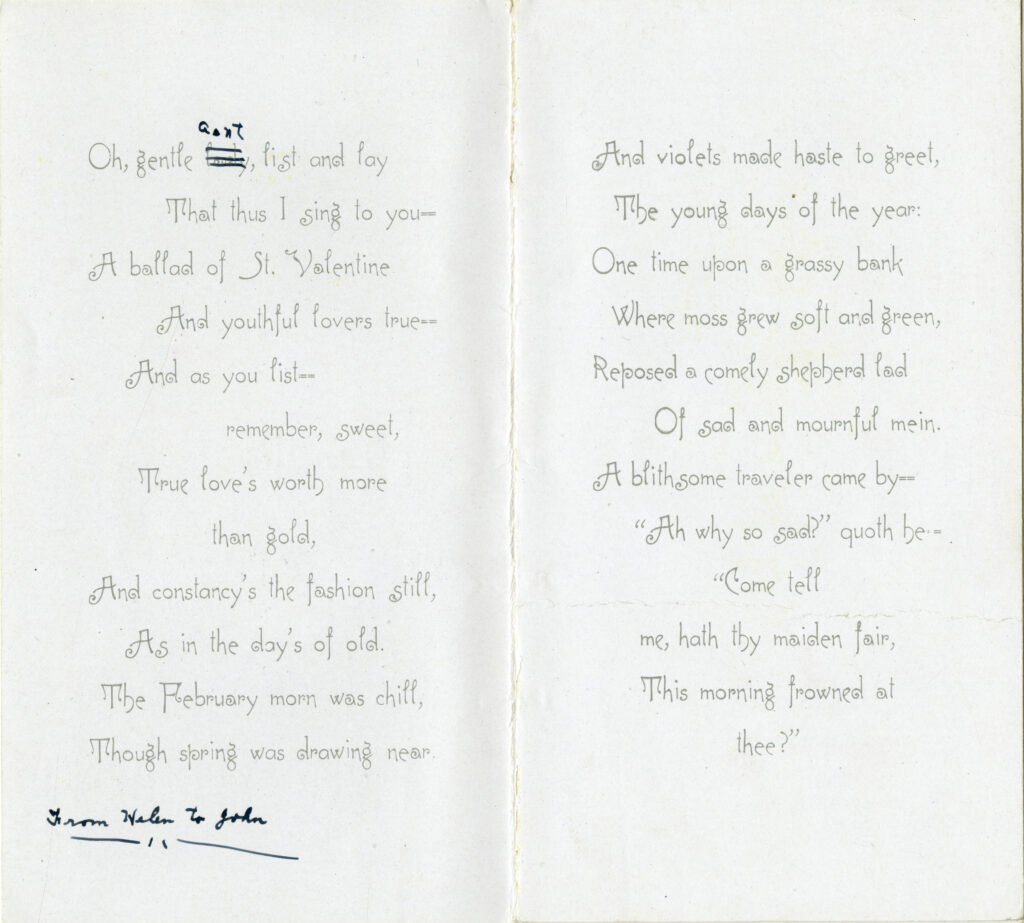 aunt
Oh, gentle , list and lay
That thus I sing to you--
A ballad of St. Valentine
And youthful lovers true--
And as you list--
remember, sweet,
True love's worth more
than gold,
And constancy's the fashion still,
As in the day's of old.
The February morn was chill,
Though spring was drawing near.
From Helen to John
And violets made haste to greet,
The young days of the year:
One time upon a grassy bank
Where moss grew soft and green,
Reposed a comely shepherd lad
Of sad and mournful mein.
A blithsome traveler came by--
"Ah why so sad?" quoth he--
"Come tell
me, hath thy maiden fair,
This morning frowned at
thee?"